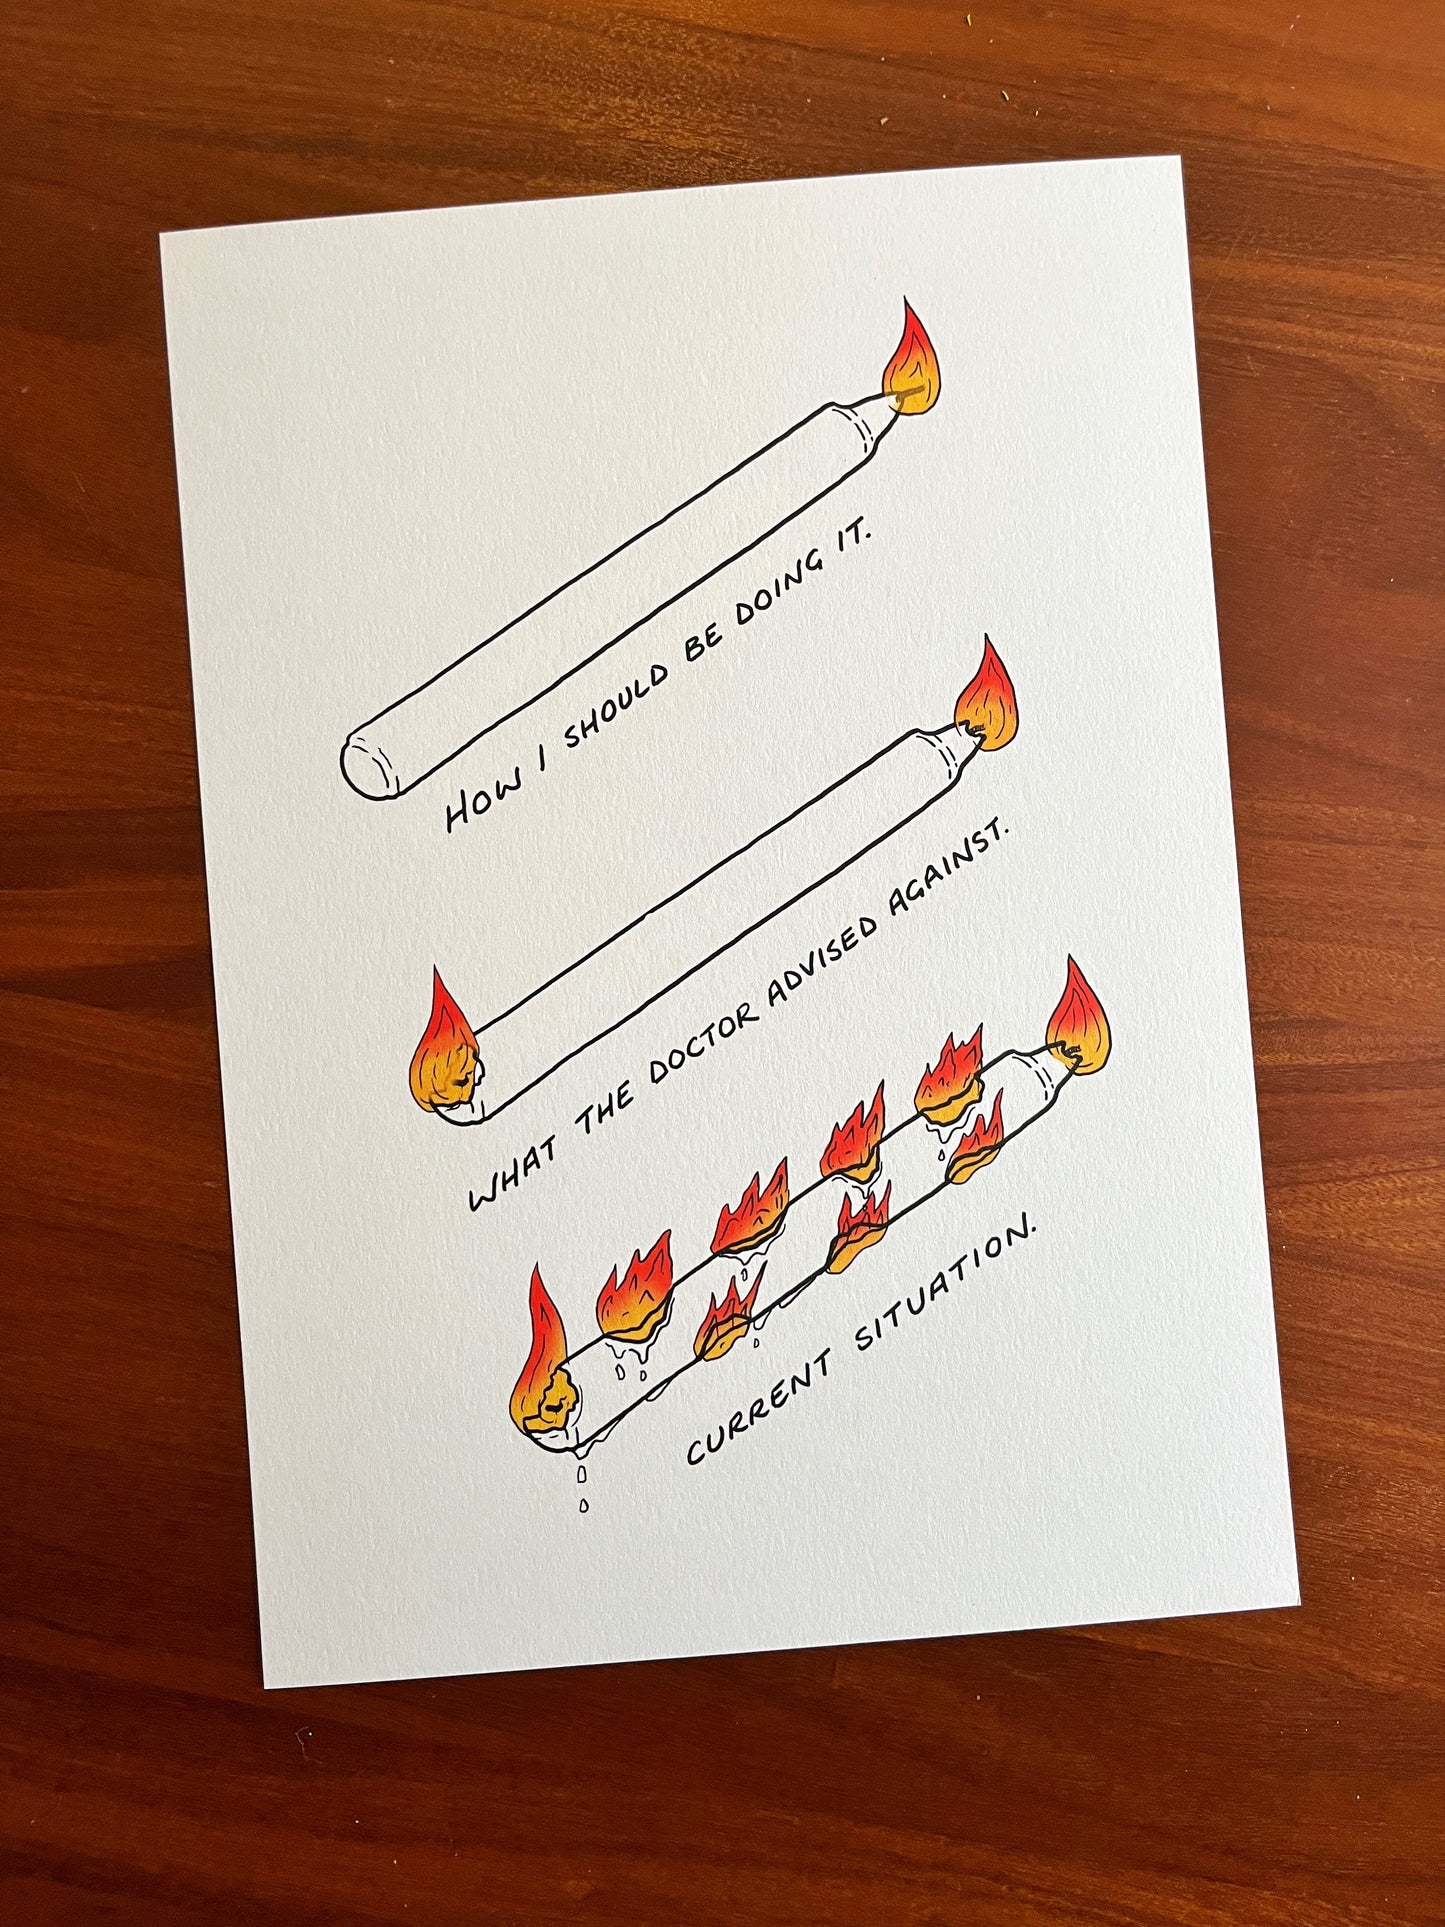 HOW I SHOULD BE DOING IT.
WHAT THE DOCTOR ADVISED AGAINST.
CURRENT SITUATION.